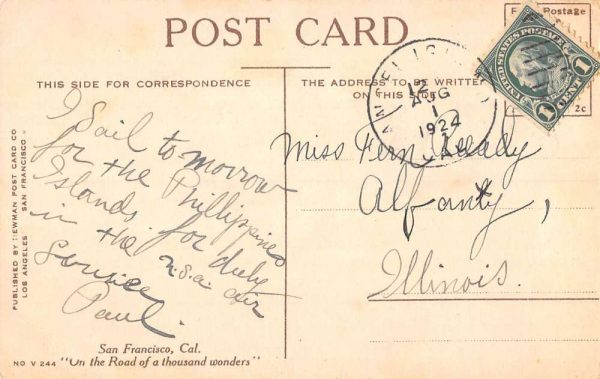 POST CARD
THIS SIDE FOR CORRESPONDENCE
THE ADDRESS TO BE WRITTEN
ON THIS SIDE
Postage
2c
UNITED STATES POSTAGE
1 CENT 1
12
AUG
1
1924
I Sail to-morrow
for the Phillippines
Islands for duty
in the U.S.A. air
Service
Paul.
Miss Fern
Alfanty,
Illinois.
PUBLISHED BY NEWMAN POST CARD CO
LOS ANGELES SAN FRANCISCO
San Francisco, Cal.
NO V 244 "On the Road of a thousand wonders"